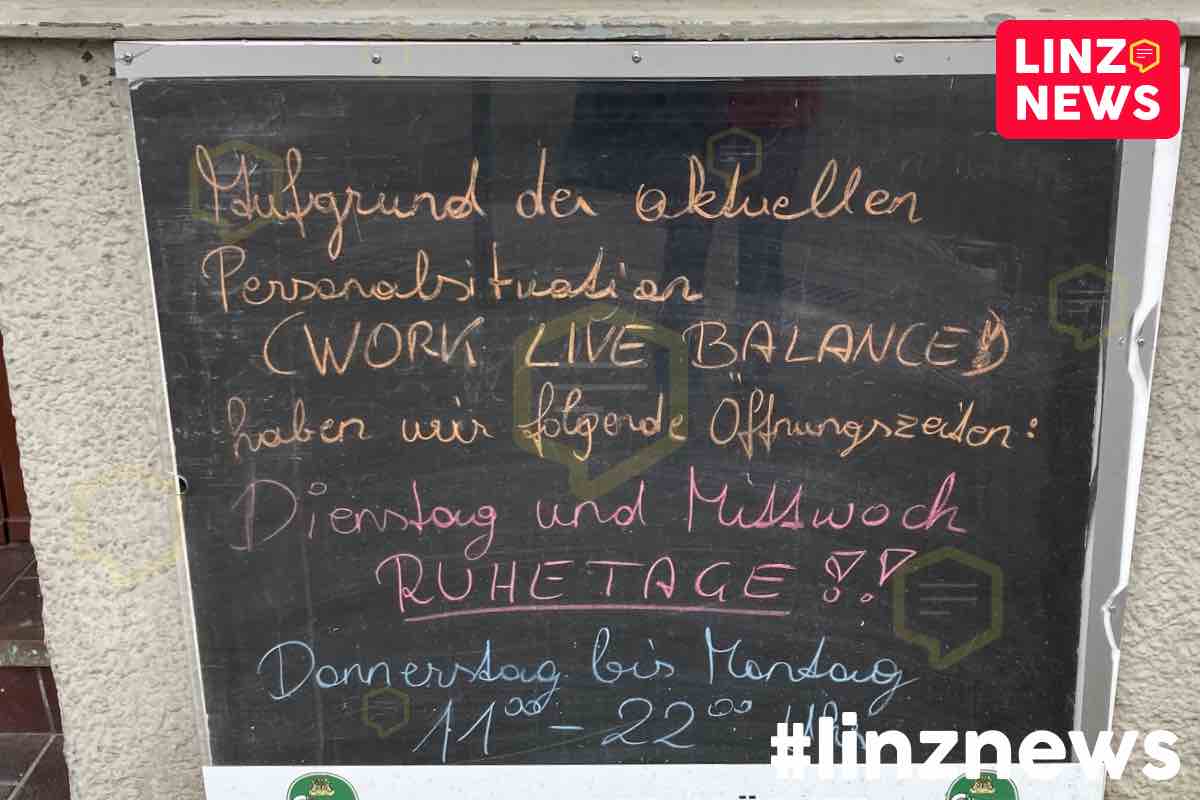 LINZ
NEWS
Aufgrund der aktuellen
Personalsituation
(WORK LIVE BALANCE!)
haben wir folgende Öffnungszeiten:
Dienstag und Mittwoch
RUHETAGE !!
Donnerstag bis Montag
11⁰⁰ - 22⁰⁰ Uhr
#linznews